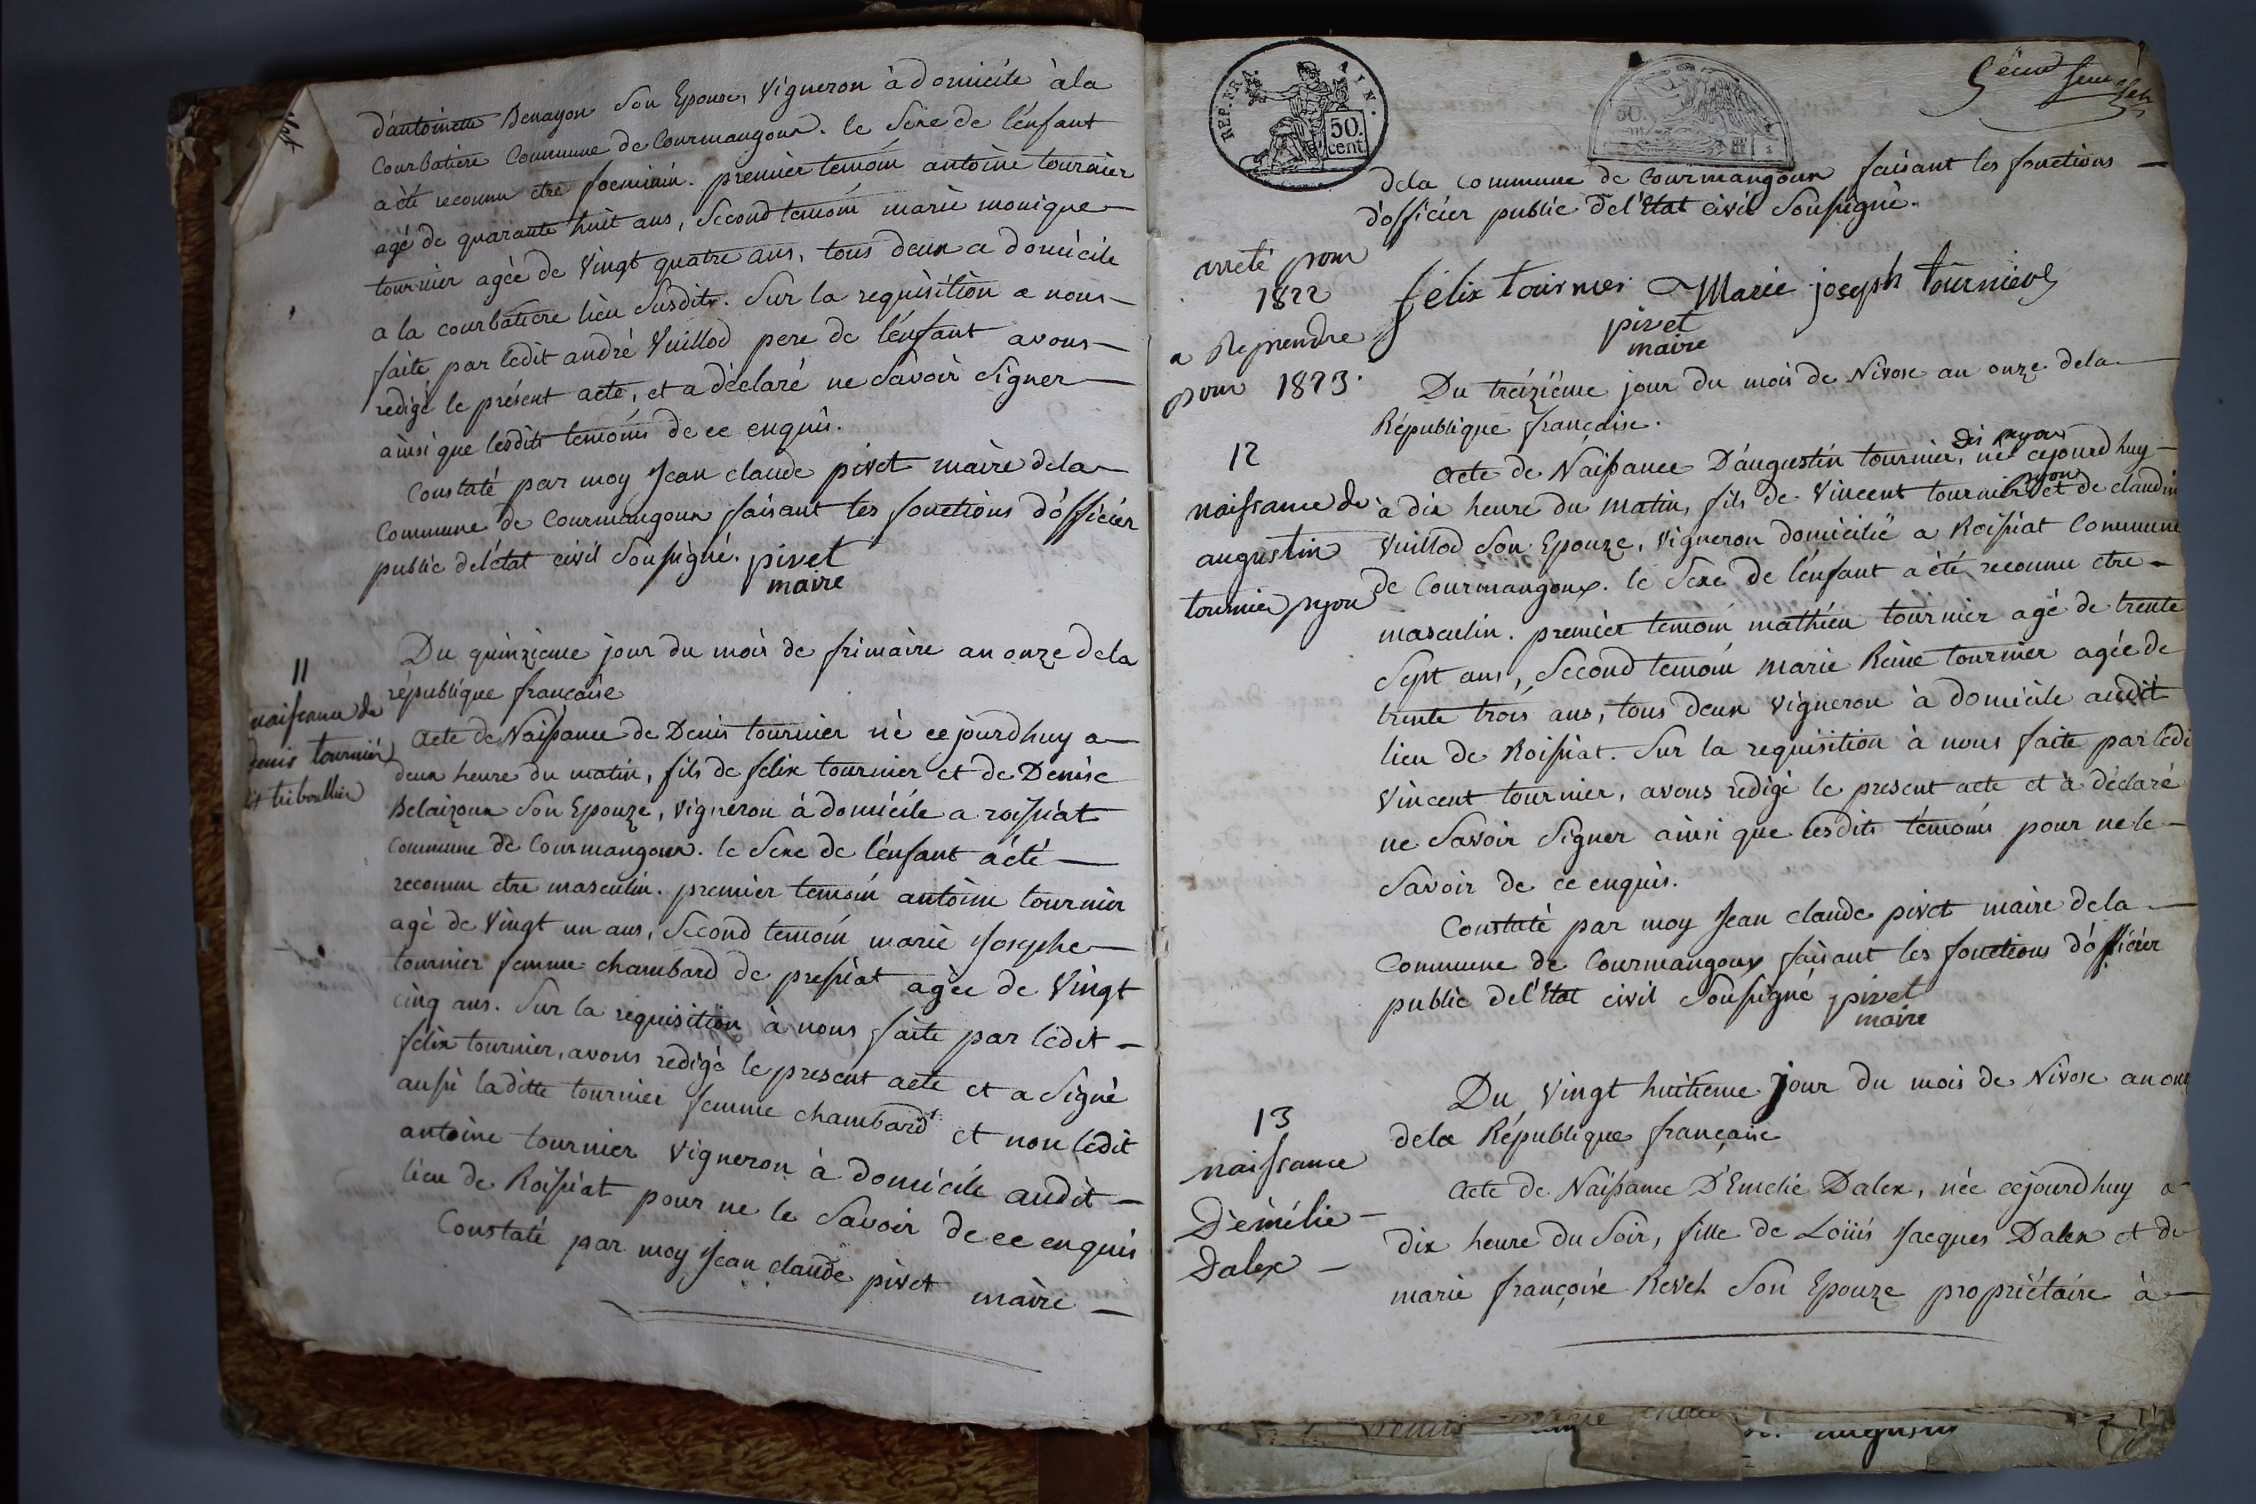 d'antoinette Benayon Son Epouse, Vigneron à domicile à la
Courbatiere Commune de Courmangoux. le Sexe de l'enfant
a été reconnu etre foeminin. premier temoin antoine tournier
agé de quarante huit ans, Second temoin marie monique
tournier agée de Vingt quatre ans, tous deux a domicile
a la courbatiere lieu Susdit. Sur la requisition a nous
faite par ledit andré Vuillod pere de l'enfant avons
redigé le présent acte, et a déclaré ne Savoir Signer
ainsi que lesdits temoins de ce enquis.
Constaté par moy Jean claude pivet maire de la
Commune de Courmangoux faisant les fonctions d'officier
public de l'état civil Soussigné. pivet
maire
11
naissance de
denis tournier
dit triboullier
Du quinzieme jour du mois de frimaire an onze de la
république françaíse
Acte de Naissance de Denis tournier né ce jourdhuy a
deux heure du matin, fils de felix tournier et de Denise
Belaizoux Son Epouze, Vigneron à domicile a roissiat
Commune de Courmangoux. le Sexe de l'enfant a été
reconnu etre masculin. premier temoin antoine tournier
agé de Vingt un ans, Second temoin marie Josephe
tournier femme chambard de pressiat agée de Vingt
cinq ans. Sur la requisition à nous faite par ledit
felix tournier, avons redigé le present acte et a Signé
aussi laditte tournier femme chambard et non ledit
antoine tournier Vigneron à domicile audit
lieu de Roissiat pour ne le Savoir de ce enquis
Constaté par moy Jean claude pivet maire
REP. FRA.
50.
cent.
50.
de la Commune de Courmangoux faisant les fonctions
d'officier public de l'Etat civil Soussigné.
felix tournier Marie joseph tournier
pivet
maire
arreté pour
1822
a Reprendre
pour 1823.
Du treizième jour du mois de Nivose an onze de la
République française.
12
naissance de
augustin
tournier pyon
dit pyon
Acte de Naissance D'augustin tournier, né cejourdhuy
pyon
à dix heure du matin, fils de Vincent tournier et de claudin
Vuillod Son Epouze, Vigneron domicilié a Roissiat Commune
de Courmangoux. le Sexe de l'enfant a été reconnu etre
masculin. premier temoin mathieu tournier agé de trente
Sept ans, Second temoin marie Reine tournier agée de
trente trois ans, tous deux Vigneron à domicile audit
lieu de Roissiat. Sur la requisition à nous faite par ledi
Vincent tournier, avons redigé le present acte et à déclaré
ne Savoir Signer ainsi que lesdits témoins pour ne le
Savoir de ce enquis.
Constaté par moy Jean claude pivet maire de la
Commune de Courmangoux faisant les fonctions d'officier
public de l'Etat civil Soussigné pivet
maire
13
naissance
D'émélie
Dalex
Du Vingt huitieme jour du mois de Nivose an onz
de la République française
Acte de Naissance D'Emelie Dalex, née cejourdhuy a
dix heure du Soir, fille de Loüis Jacques Dalex et de
marie françoise Revel Son Epouze propriétaire à